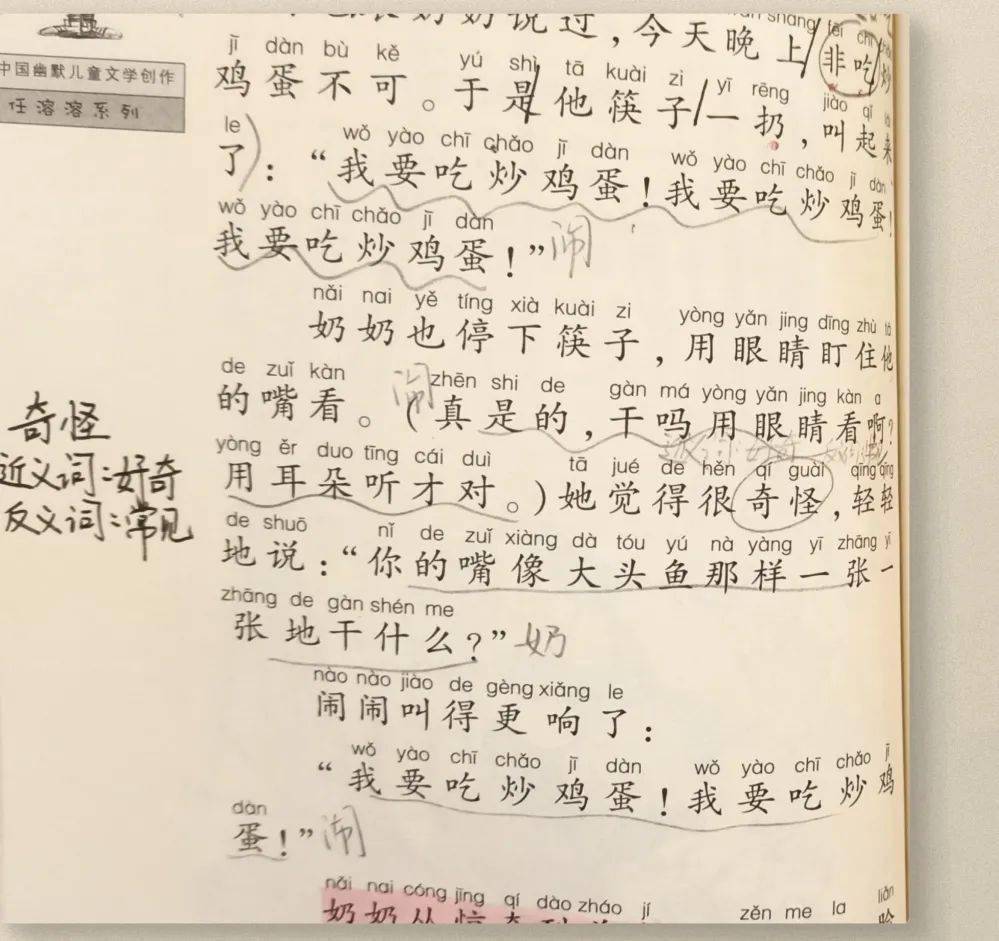 奶奶说过，今天晚上非吃炒
中国幽默儿童文学创作
任溶溶系列
jī dàn bù kě yú shì tā kuài zi yī rēng jiào qǐ lá
鸡蛋不可。于是他筷子一扔，叫起来
le wǒ yào chī chǎo jī dàn wǒ yào chī chǎo jī dàn
了：“我要吃炒鸡蛋！我要吃炒鸡蛋！
wǒ yào chī chǎo jī dàn
我要吃炒鸡蛋！”闹
nǎi nai yě tíng xià kuài zi yòng yǎn jing dīng zhù tā
奶奶也停下筷子，用眼睛盯住他
de zuǐ kàn zhēn shi de gàn má yòng yǎn jing kàn a
的嘴看。闹（真是的，干吗用眼睛看啊？
yòng ěr duo tīng cái duì tā jué de hěn qí guài qīng qīng
用耳朵听才对。）她觉得很奇怪，轻轻
奇怪
近义词：好奇
反义词：常见
de shuō nǐ de zuǐ xiàng dà tóu yú nà yàng yī zhāng yī
地说：“你的嘴像大头鱼那样一张一
zhāng de gàn shén me
张地干什么？”奶
nào nào jiào de gèng xiǎng le
闹闹叫得更响了：
wǒ yào chī chǎo jī dàn wǒ yào chī chǎo jī
“我要吃炒鸡蛋！我要吃炒鸡
dàn
蛋！”闹
nǎi nai cóng jīng qí dào zháo jí zěn me la liǎn
奶奶从惊奇到着